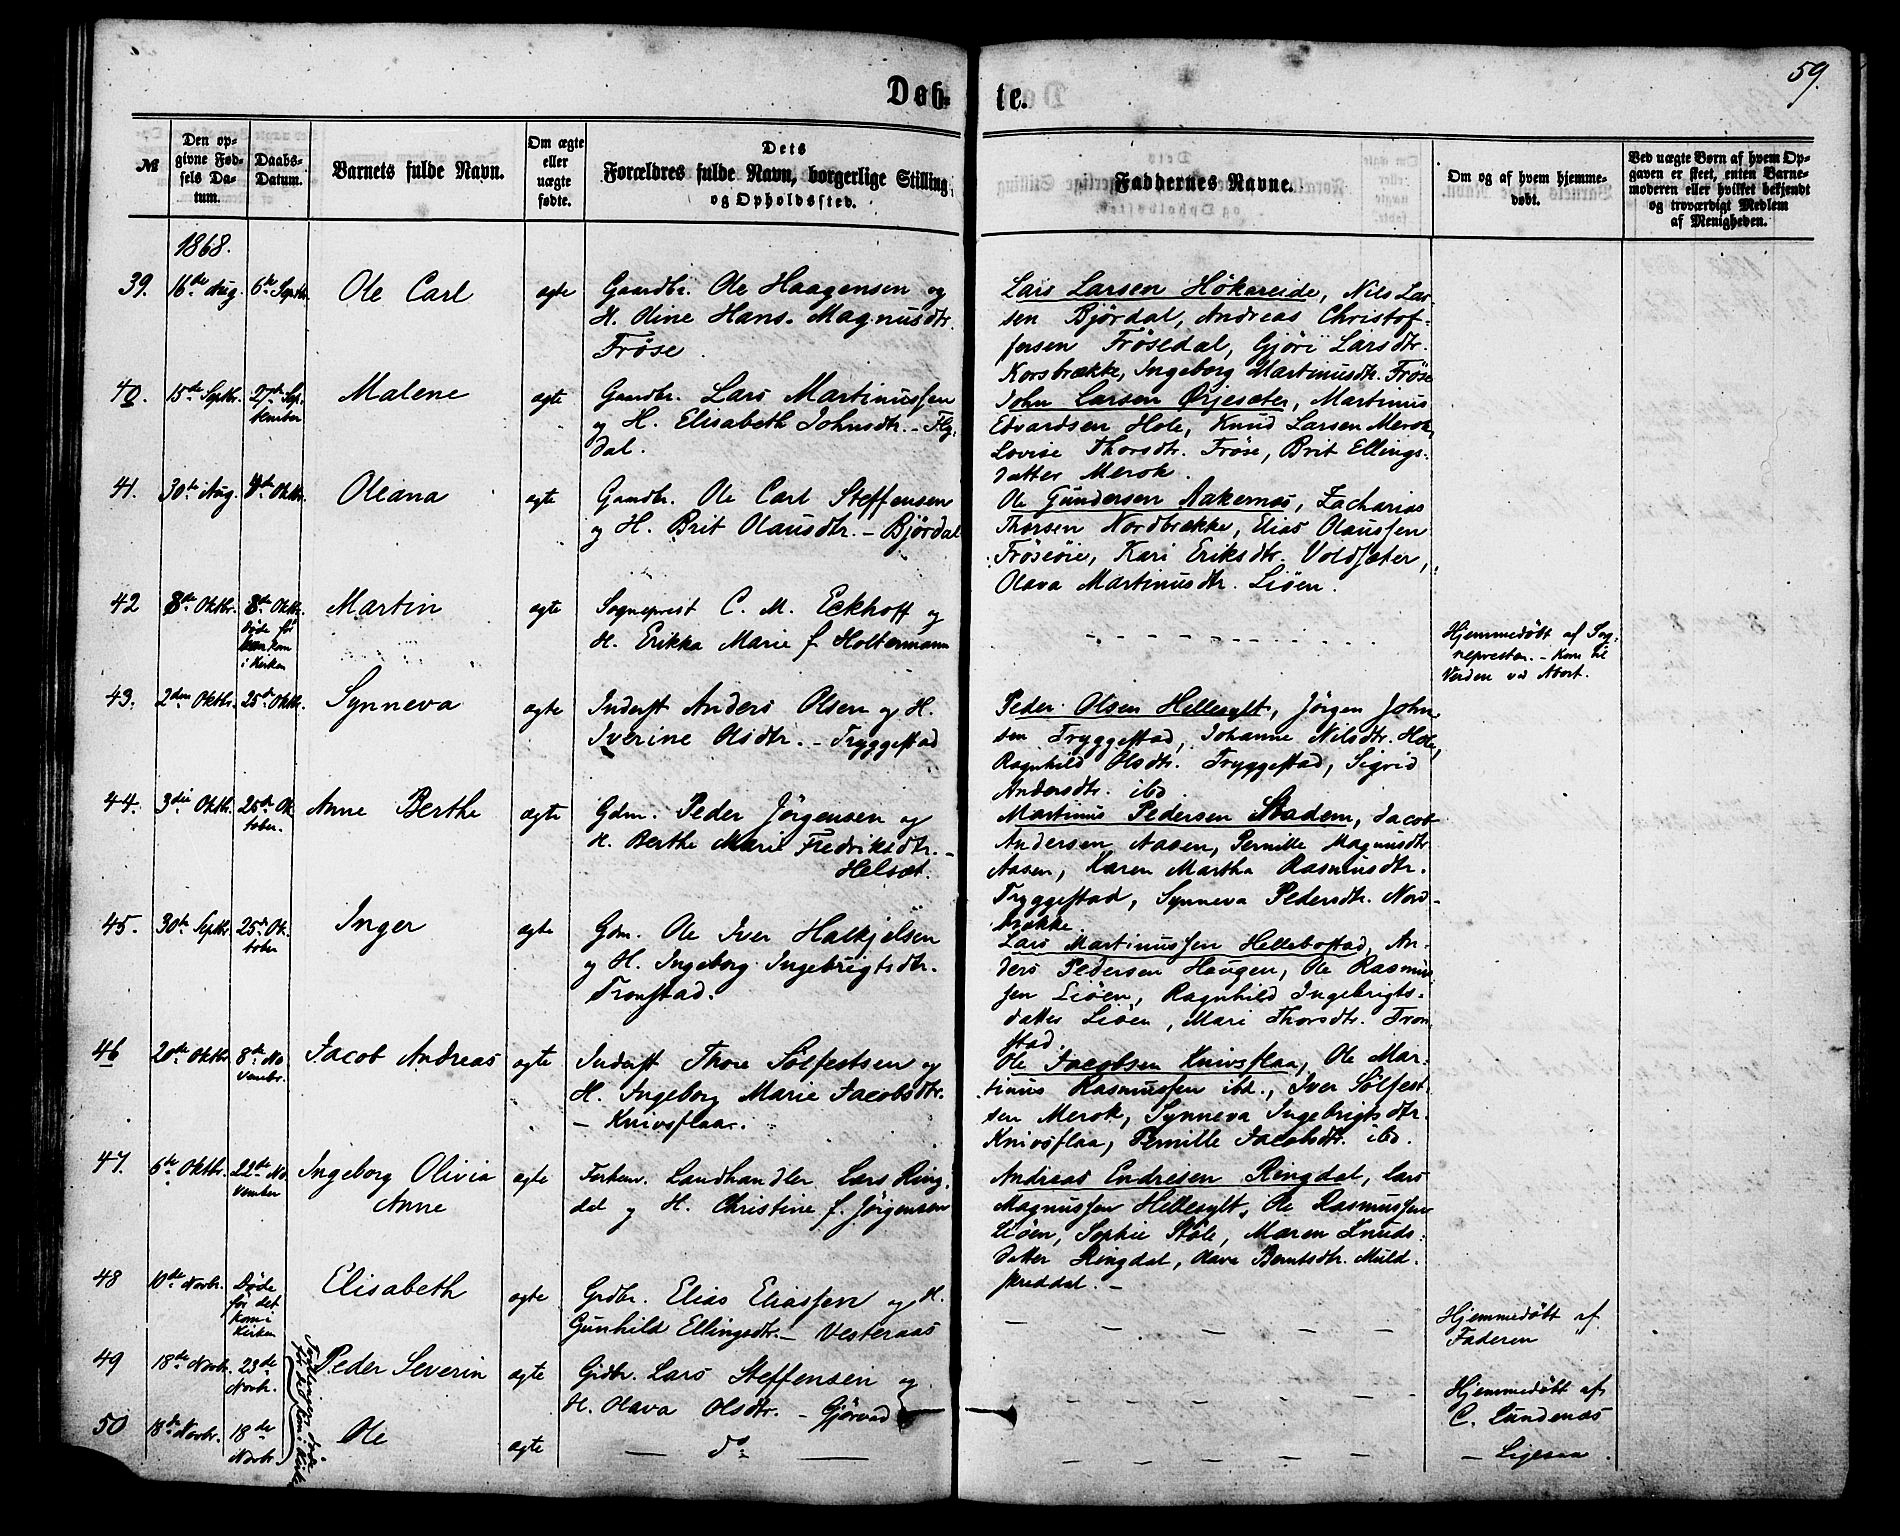 59.
Døb-
te.
№
Den op-
givne Fød-
sels Da-
tum.
Daabs-
Datum.
Barnets fulde Navn.
Om ægte
eller
uægte
fødte.
Dets
Forældres fulde Navn, borgerlige Stilling
og Opholdssted.
Faddernes Navne.
Om og af hvem hjemme-
døbt.
Ved uægte Børn af hvem Op-
gaven er skeet, enten Barne-
moderen eller hvilket bekjendt
og troværdigt Medlem
af Menigheden.
1868.
39.
16de Aug.
6te Septbr.
Ole Carl
ægte
Gaardbr. Ole Haagensen og
H. Oline Hans-Magnusdtr.
Frøse.
Lars Larsen Hökareide, Nils Lar-
sen Bjørdal, Andreas Christof-
fersen Frøsedal, Gjöri Larsdtr.
Korsbrække, Ingeborg Martinusdtr. Frøse
40.
15de Septbr.
27de Sep-
tember
Malene
ægte
Gaardbr. Lars Martinussen
og H. Elisabeth Johnsdtr. – Fly
dal.
John Larsen Ørjesæter, Martinus
Edvardsen Hole, Knud Larsen Merok,
Lovise Thorsdtr. Frøse, Brit Ellings-
datter Merok.
41.
30te Aug.
Oktbr.
Oleana
ægte
Gaardbr. Ole Carl Steffensen
og H. Brit Olausdtr. – Bjørdal
Ole Gundersen Aakernes, Zacharias
Thorsen Nordbrække, Elias Olaussen
Frøseøie, Kari Eriksdtr. Voldsæter,
Olava Martinusdtr. Liöen.
42
8de Oktbr.
8de Oktbr.
Døde før
kom
i Kirken
Martin
ægte
Sogneprest C. M. Eckhoff og
H. Erikka Marie f. Holtermann
Hjemmedøbt af Sog-
nepresten. – Kom til
Verden ved Abort.
43.
2den Oktbr.
25de Oktbr.
Synneva
ægte
Inderst Anders Olsen og H.
Iverine Olsdtr. – Tryggestad
Peder Olsen Hellesylt, Jörgen John-
sen Tryggestad, Johanne Nilsdtr. Hole,
Ragnhild Olsdtr. Tryggestad, Sigrid
Andersdtr. ibd.
44.
3die Oktbr.
25de Ok
tober.
Anne Berthe
ægte
Gdm. Peder Jörgensen og
H. Berthe Marie Fredriksdtr. –
Helset.
Martinus Pedersen Stadem, Jacob
Andersen Aasen, Pernille Magnusdtr.
Aasen, Karen Martha Rasmusdtr.
Tryggestad, Synneva Pedersdtr. Nord-
brække
45.
30te Septbr.
25de Ok-
tober
Inger
ægte
Gdm. Ole Iver Halkjelsen
og H. Ingeborg Ingebrigtsdtr.
Tronstad.
Lars Martinussen Hellebostad, An-
ders Pedersen Haugen, Ole Rasmus-
sen Liöen, Ragnhild Ingebrigts-
datter Liöen, Mari Thorsdtr. Tron
stad.
46
20de Oktbr.
8de No
vembr.
Jacob Andreas
ægte
Inderst Thore Sölfestsen og
H. Ingeborg Marie Jacobsdtr.
– Knivsflaa.
Ole Jacobsen Knivsflaa, Ole Mar-
tinus Rasmussen ibd., Iver Sölfest-
sen Merok, Synneva Ingebrigtsdtr.
Knivsflaa, Pernille Jacobsdtr. ibd.
47.
6te Oktbr.
22de No
vember
Ingeborg Olivia
Anne
ægte
Forhenv. Landhandler Lars Ring-
dal og H. Christine f. Jörgensen
Andreas Endresen Ringdal, Lars
Magnussen Hellesylt, Ole Rasmussen
Liöen, Sophie Støle, Maren Knuds-
datter Ringdal, Olava Berntsdtr. Muld-
skreddal. –
48
10de Novbr.
Døde
før det
kom i
Kirken
Elisabeth
ægte
Grdbr. Elias Eliassen og H.
Gunhild Ellingsdtr. – Vesteraas
Hjemmedøbt af
Faderen
49
18de Novbr.
23de
Novbr.
Peder Severin
ægte
Grdbr. Lars Steffensen og
H. Olava Olsdtr. – Gjörvad
Hjemmedøbt af
C. Lundenæs
50
18de Novbr.
18de
Novbr.
Tvillinger, døde
før de kom i Kirken
Ole
ægte
— do —
– Ligesaa.